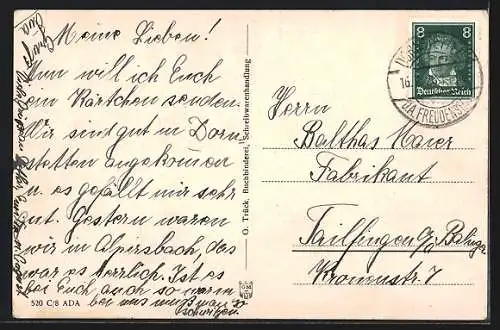 Meine Lieben!
Nun will ich Euch
ein Kärtchen senden.
Wir sind gut in Dorn-
stetten angekommen
u. es gefällt mir sehr
gut. Gestern waren
wir in Alpirsbach, das
war es herrlich. Ist es
bei Euch auch so warm
bei uns muß man so
schwitzen.
520 C/8 ADA
O. Trück, Buchbinderei, Schreibwarenhandlung
8 8
Deutsches Reich
16.
FREUDENS
Herrn
Balthas Maier
Fabrikant
Tailfingen
Kronenstr. 7